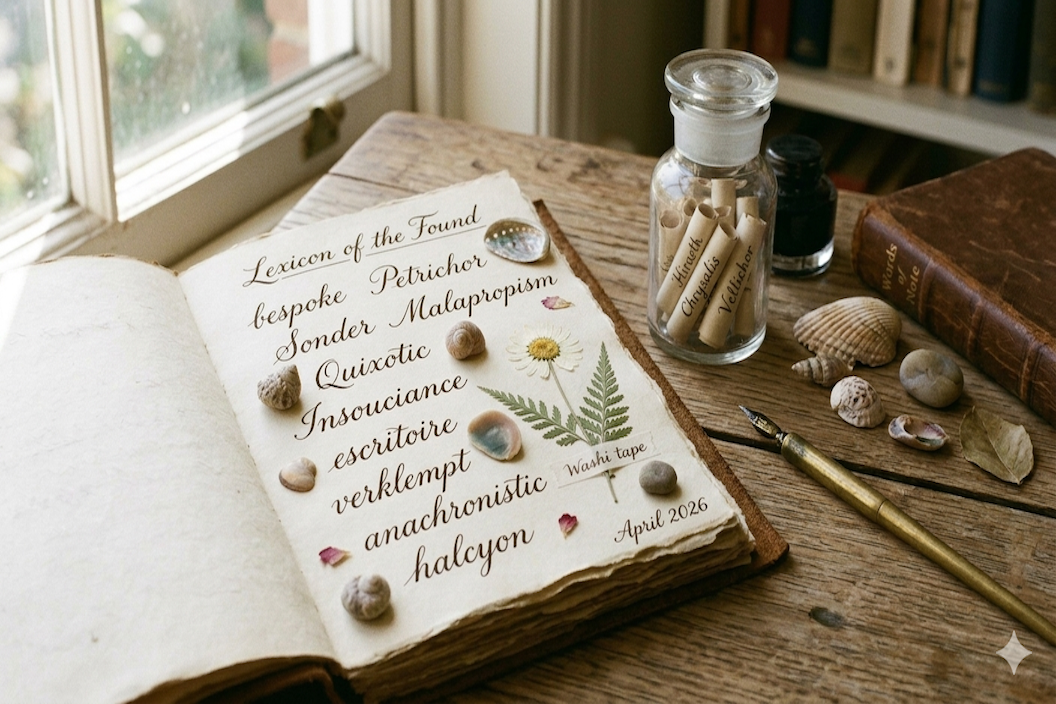 Lexicon of the Found
bespoke Petrichor
Sonder Malapropism
Quixotic
Insouciance
escritoire
verklempt
anachronistic
halcyon
Washi tape
April 2026
Hiraeth
Chrysalis
Vellichor
Words
of
Note